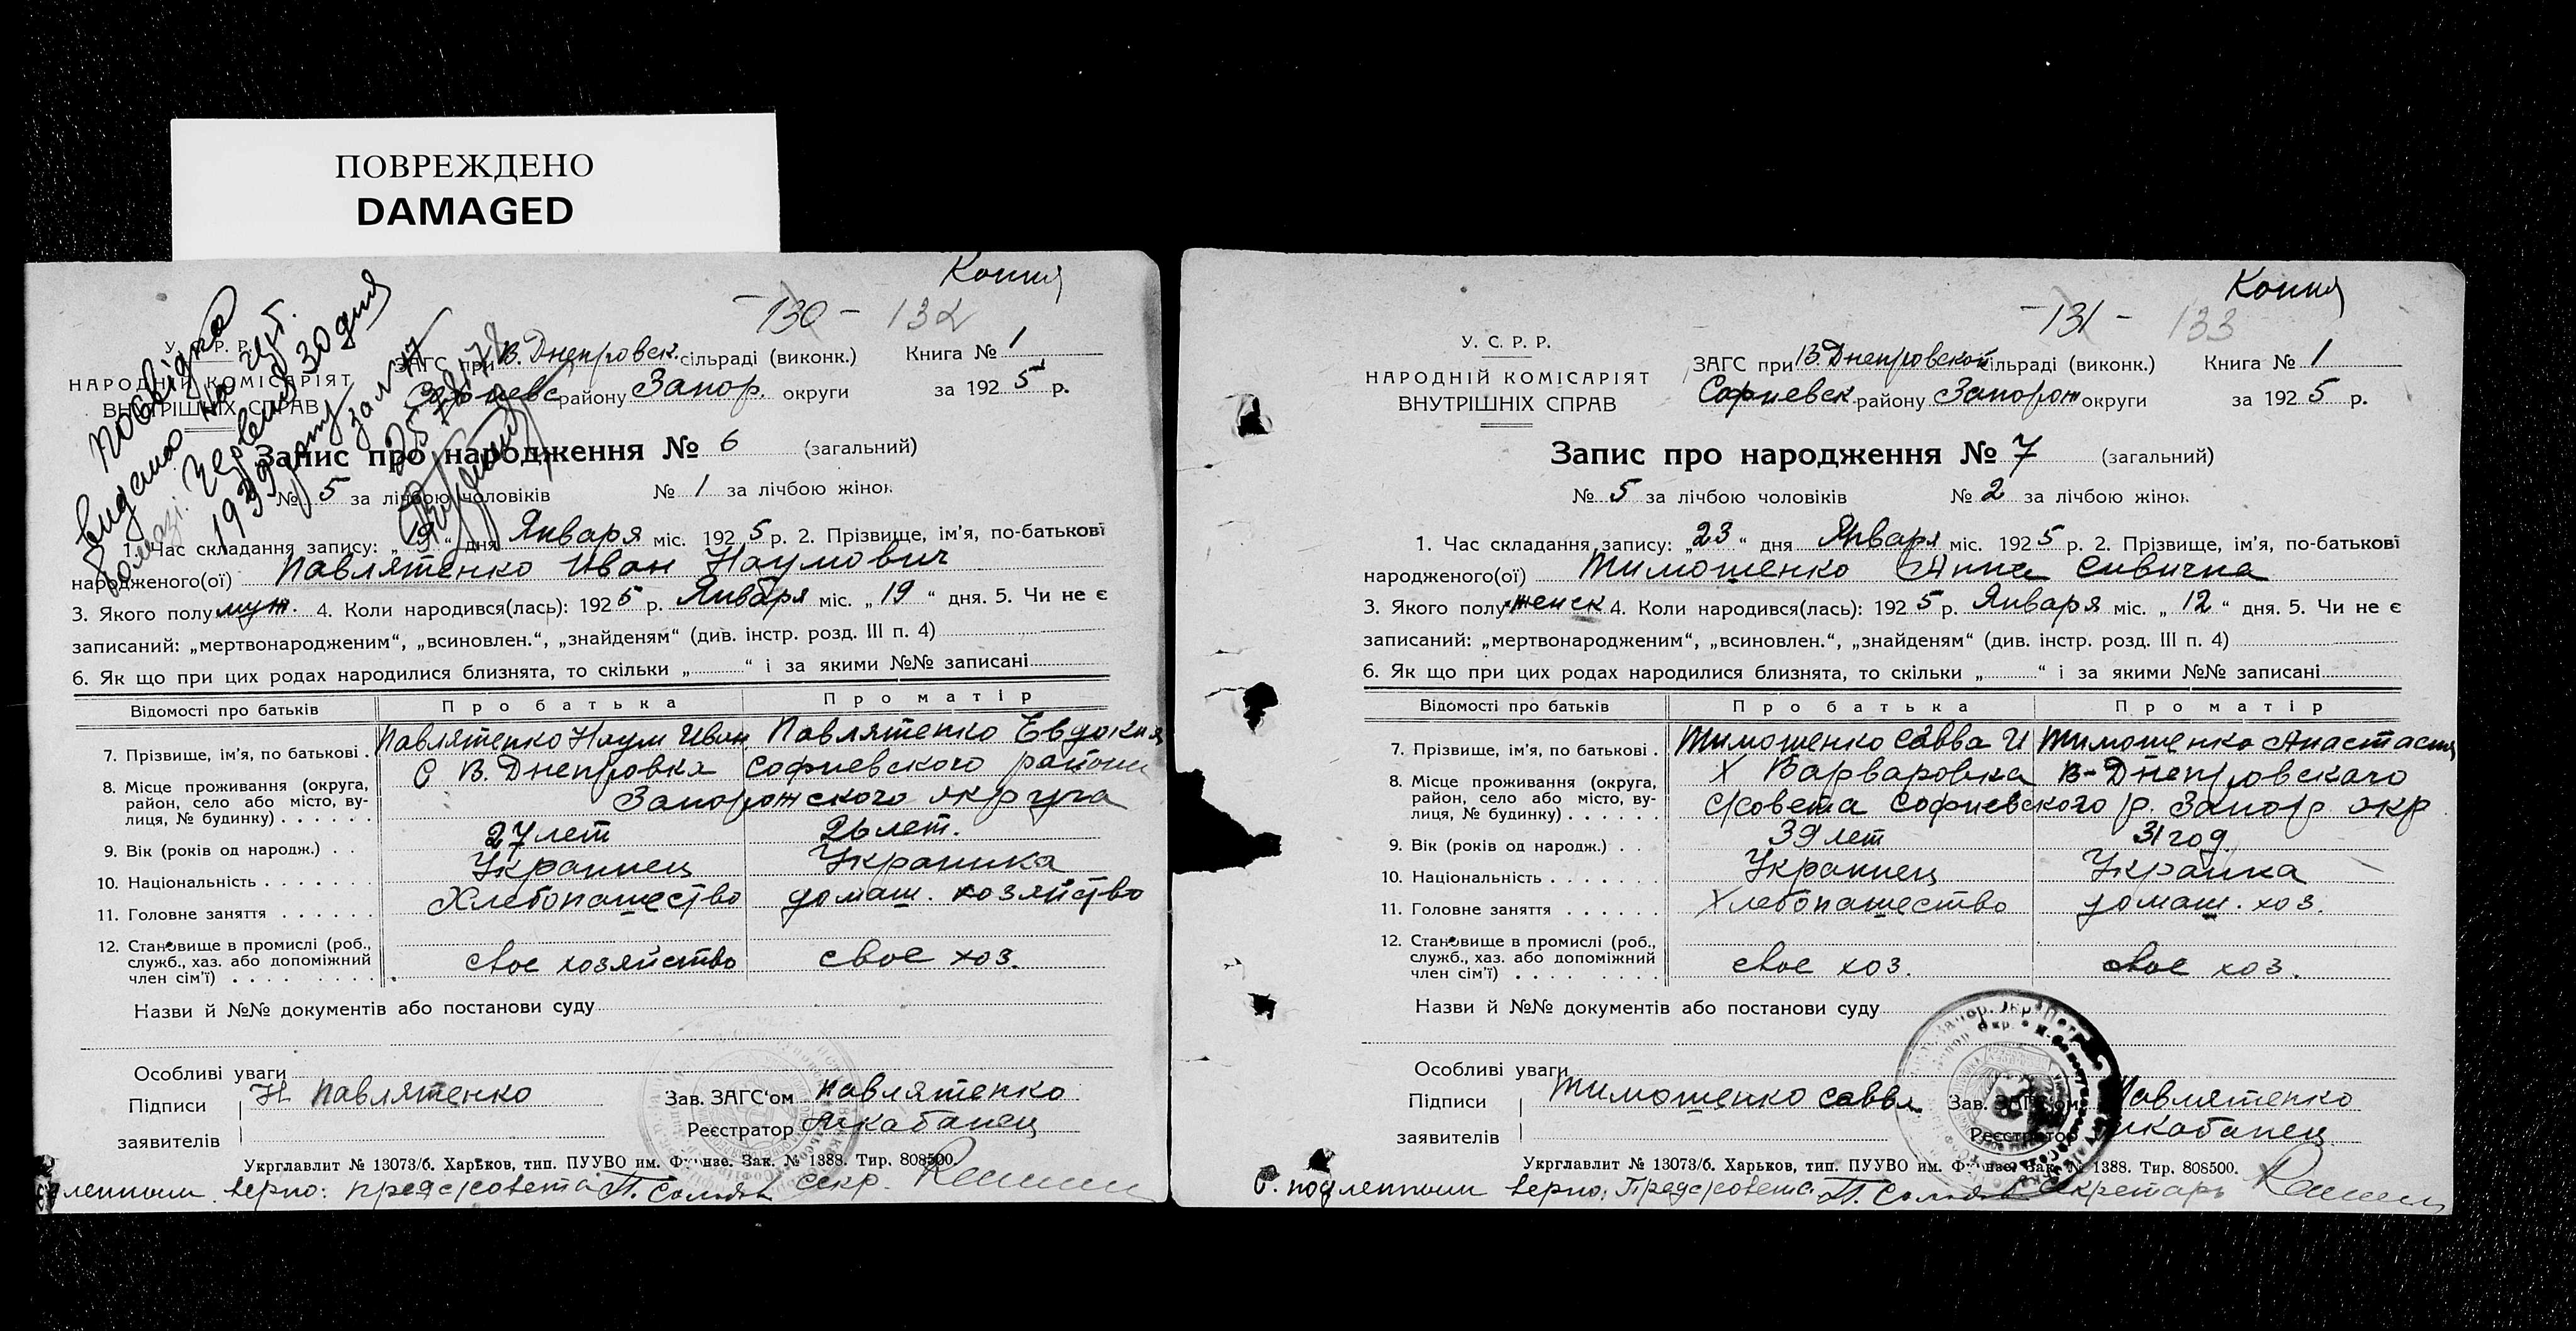 ПОВРЕЖДЕНО
DAMAGED
Копия
-130- 132
У. С. Р. Р.
НАРОДНІЙ КОМІСАРІЯТ
ВНУТРІШНІХ СПРАВ
посвідка
видано на
червня 30 дня
1939 року
ЗАГС при В. Днепровск. сільраді (виконк.) Книга № 1
району Запор. округи за 1925 р.
Запис про народження № 6 (загальний)
№ 5 за лічбою чоловіків № 1 за лічбою жінок
1. Час складання запису: „19“ дня Января міс. 1925 р. 2. Прізвище, ім’я, по-батькові
народженого(ої) Павлятенко Иван Наумович
3. Якого полу муж. 4. Коли народився(лась): 1925 р. Января міс. „19“ дня. 5. Чи не є
записаний: „мертвонародженим“, „всиновлен.“, „знайденям“ (див. інстр. розд. III п. 4)
6. Як що при цих родах народилися близнята, то скільки „ “ і за якими №№ записані
Відомості про батьків Про батька Про матір
7. Прізвище, ім’я, по батькові . Павлятенко Наум Иван Павлятенко Евдокия
8. Місце проживання (округа, район, село або місто, вулиця, № будинку) С В. Днепровка Софиевского района
Запорожского округа
9. Вік (років од народж.) . . 27 лет 26 лет.
10. Національність Украинец Украинка
11. Головне заняття Хлебопашество домаш. хозяйство
12. Становище в промислі (роб., служб., хаз. або допоміжний член сім’ї) свое хозяйство свое хоз.
Назви й №№ документів або постанови суду
Особливі уваги
Підписи заявителів Н Павлятенко
Зав. ЗАГС‘ом Павлятенко
Реєстратор Дикабанец
Укрглавлит № 13073/б. Харьков, тип. ПУУВО им. Фрунзе. Зак. № 1388. Тир. 808500.
верно: предсовета секр.
Копия
-131- 133
У. С. Р. Р.
НАРОДНІЙ КОМІСАРІЯТ
ВНУТРІШНІХ СПРАВ
ЗАГС при В. Днепровской сільраді (виконк.) Книга № 1
Софиевск району Запорож округи за 1925 р.
Запис про народження № 7 (загальний)
№ 5 за лічбою чоловіків № 2 за лічбою жінок
1. Час складання запису: „23“ дня Января міс. 1925 р. 2. Прізвище, ім’я, по-батькові
народженого(ої) Тимошенко Анна Савична
3. Якого полу женск 4. Коли народився(лась): 1925 р. Января міс. „12“ дня. 5. Чи не є
записаний: „мертвонародженим“, „всиновлен.“, „знайденям“ (див. інстр. розд. III п. 4)
6. Як що при цих родах народилися близнята, то скільки „ “ і за якими №№ записані
Відомості про батьків Про батька Про матір
7. Прізвище, ім’я, по батькові . Тимошенко Савва И Тимошенко Анастасия
8. Місце проживання (округа, район, село або місто, вулиця, № будинку) Х Варваровка В-Днепровского
с/совета Софиевского р. Запор окр
9. Вік (років од народж.) . . 39 лет 31 год.
10. Національність Украинец Украинка
11. Головне заняття Хлебопашество домаш. хоз.
12. Становище в промислі (роб., служб., хаз. або допоміжний член сім’ї) свое хоз. свое хоз.
Назви й №№ документів або постанови суду
Особливі уваги
Підписи заявителів Тимошенко Савва
Зав. ЗАГС‘ом Павлятенко
Реєстратор Дикабанец
Укрглавлит № 13073/б. Харьков, тип. ПУУВО им. Фрунзе. Зак. № 1388. Тир. 808500.
С подленным верно: Предсовета Секретарь